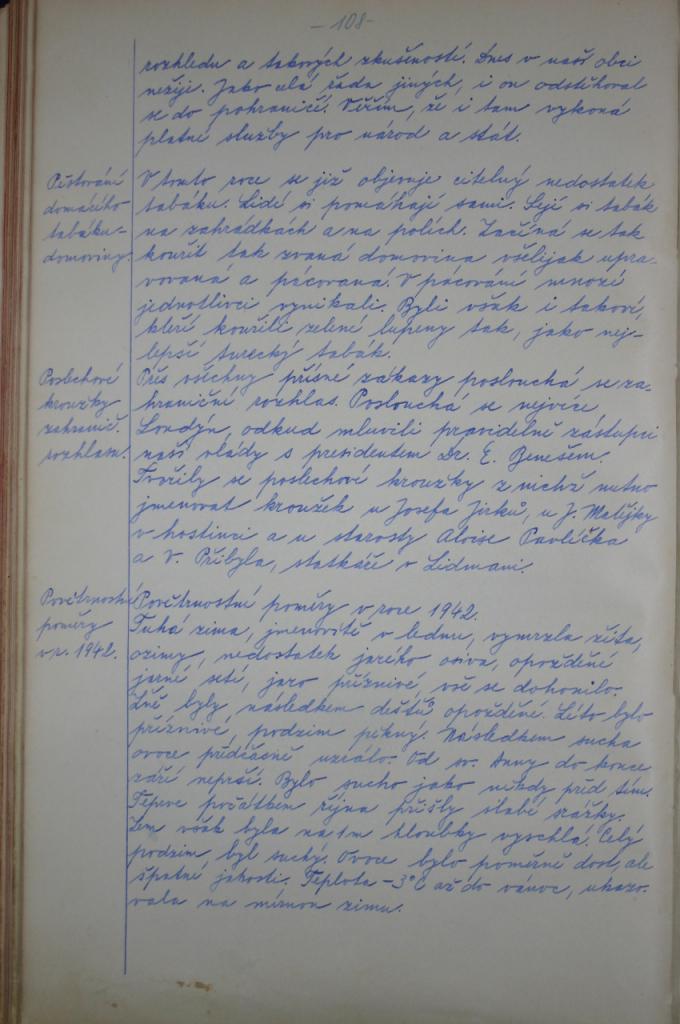 - 108 -
rozhledu a takových zkušeností. Dnes v naší obci
nežije. Jako celá řada jiných, i on odstěhoval
se do pohraničí. Věřím, že i tam vykoná
platné služby pro národ a stát.
Pěstování
domácího
tabáku -
domoviny.
V tomto roce se již objevuje citelný nedostatek
tabáku. Lidé si pomáhají sami. Sejí si tabák
na zahrádkách a na polích. Začíná se tak
kouřit tak zvaná domovina všelijak upra-
vovaná a pácovaná. V pácování mnozí
jednotlivci vynikali. Byli však i takoví,
kteří kouřili zelené lupeny tak, jako nej-
lepší turecký tabák.
Poslechové
kroužky
zahranič.
rozhlasu.
Přes všechny přísné zákazy poslouchá se za-
hraniční rozhlas. Poslouchá se nejvíce
Londýn, odkud mluvili pravidelně zástupci
naší vlády s presidentem Dr. E. Benešem.
Tvořily se poslechové kroužky z nichž nutno
jmenovat kroužek, u Josefa Jirků, u J. Matějky
v hostinci a u starosty Aloise Pavlíčka
a V. Přibyla, statkáře v Lidmani.
Povětrnostní
poměry
v r. 1942.
Povětrnostní poměry v roce 1942.
Tuhá zima, jmenovitě v lednu, vymrzla žita,
ozimy, nedostatek jarého osiva, opožděné
jarné setí, jaro příznivé, vše se dohonilo.
Žně byly následkem dešťů opožděné. Léto bylo
příznivé, podzim pěkný. Následkem sucha
ovoce předčasně uzrálo. Od sv. Anny do konce
září neprší. Bylo sucho jako nikdy před tím.
Teprve počátkem října přišly slabé srážky.
Zem však byla na 1 m hloubky vyschlá. Celý
podzim byl suchý. Ovoce bylo poměrně dost, ale
špatné jakosti. Teplota -3°C až do vánoc, ukazo-
vala na mírnou zimu.